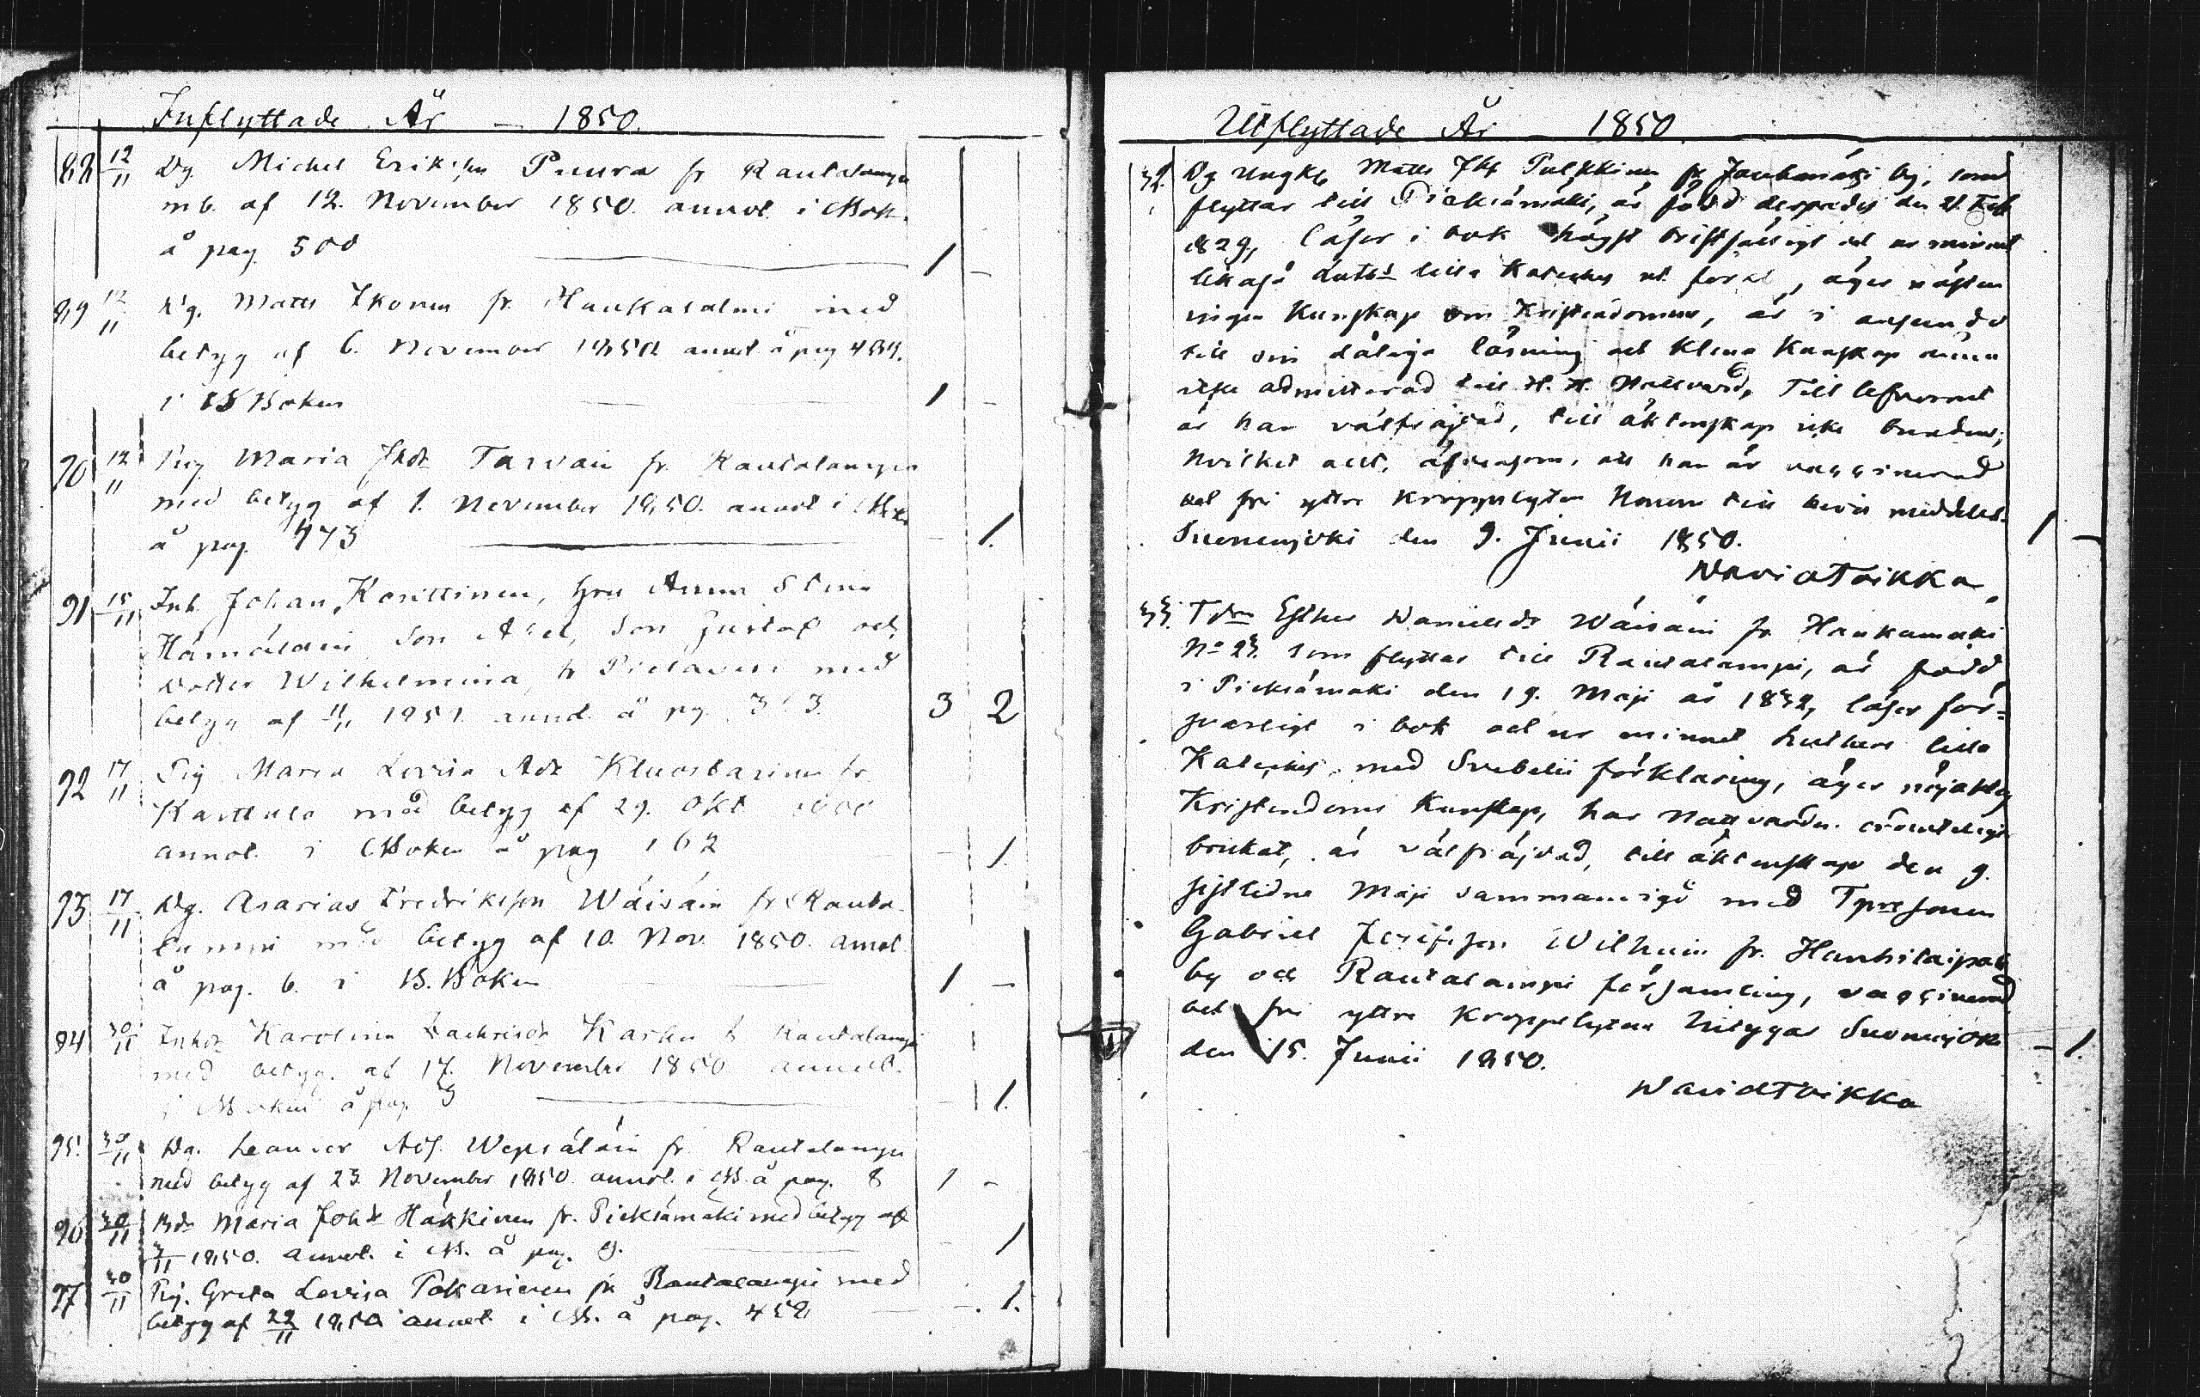 Inflyttade År – 1850.
88 12/11 Dg. Michel Eriksson Puura fr Rautalampi
m b. af 12. November 1850. annot. i Bok.
å pag 500 1 –
89 12/11 Dg. Matts Ikonen fr. Hankasalmi med
betyg af 6. November 1850 annot å pag 484.
i B Boken 1 –
90 12/11 Pig Maria Jhdr Tarvain fr. Rautalampi
med betyg af 1. November 1850. annot i
å pag. 473 – 1.
91 15/11 Inh. Johan Korittinen, hru Anna Stina
Hämäläin Son Abel, Son Gustaf och
Dotter Wilhelmina, fr Pielavesi med
betyg af annot. å pag. 3 2
92 17/11 Pig Maria Lovisa Adr fr
Karttula med betyg af 29. Okt 1850
annot. i Boken å pag 162 – 1.
93 17/11 Dg. Asarias Fredriksson Wäisäin fr Rauta-
lampi med betyg af 10. Nov. 1850. annot
å pag. 6. i B. Boken 1 –
94 30/11 Inhdr Karolina Zachrisdr fr Rautalampi
med betyg af 17. November 1850 annot.
i Boken å pag. 9 – 1.
95. 30/11 Dg. Leander Adf. Wepsäläin fr. Rautalampi
med betyg af 23. November 1850. annot. i B. å pag. 8 1 –
96 30/11 Maria Johdr Häkkinen fr. Pieksämäki med betyg af
1850. annot. i B. å pag. 9. – 1
97 30/11 Pig. Greta Lovisa Tokariainen fr Rautalampi med
betyg af 22/11 1850 annot. i B. å pag. 452 – 1.
Utflyttade År – 1850
32. Dg Ungk. Matts Jhs Pulkkinen fr Jauhomäki by, som
flyttar till Pieksämäki, är född derstädes den 21. Feb
1829, läser i bok högst bristfälligt och ur minnet
likaså Luthers lilla Kateches ut. förkl, äger nästan
ingen Kunskap om Kristendomen, är i anseende
till sin dåliga läsning och klena Kunskap ännu
icke admitterad till H. H. Nattvard, Till lefvernet
är han välfräjdad, till äktenskap icke bunden;
Hvilket allt, äfvensom, att han är vaccinerad
och fri yttre kroppslyten honom till bevis meddelas.
Suonenjoki den 9. Junii 1850. 1 –
David Toikka
33. Tdrn Esther Danielsdr Wäisäin fr. Haukamäki
No 23. som flyttar till Rautalampi, är född
i Pieksämäki den 19. Maji år 1832, läser för-
svarligt i bok och ur minnet Luthers lilla
Kateches med Svebelii förklaring, äger nöjaktig
Kristendoms Kunskap, har Nattvarden ordentligt
brukat, är välfräjdad, till äktenskap den 9.
sistlidne Maji sammanvigd med Tprs sonen
Gabriel Josefsson Wilhuin fr. Hanhitaipale
by och Rautalampi församling, vaccinerad
och fri yttre kroppslyten betygar Suonenjoki
den 15. Junii 1850. – 1.
David Toikka